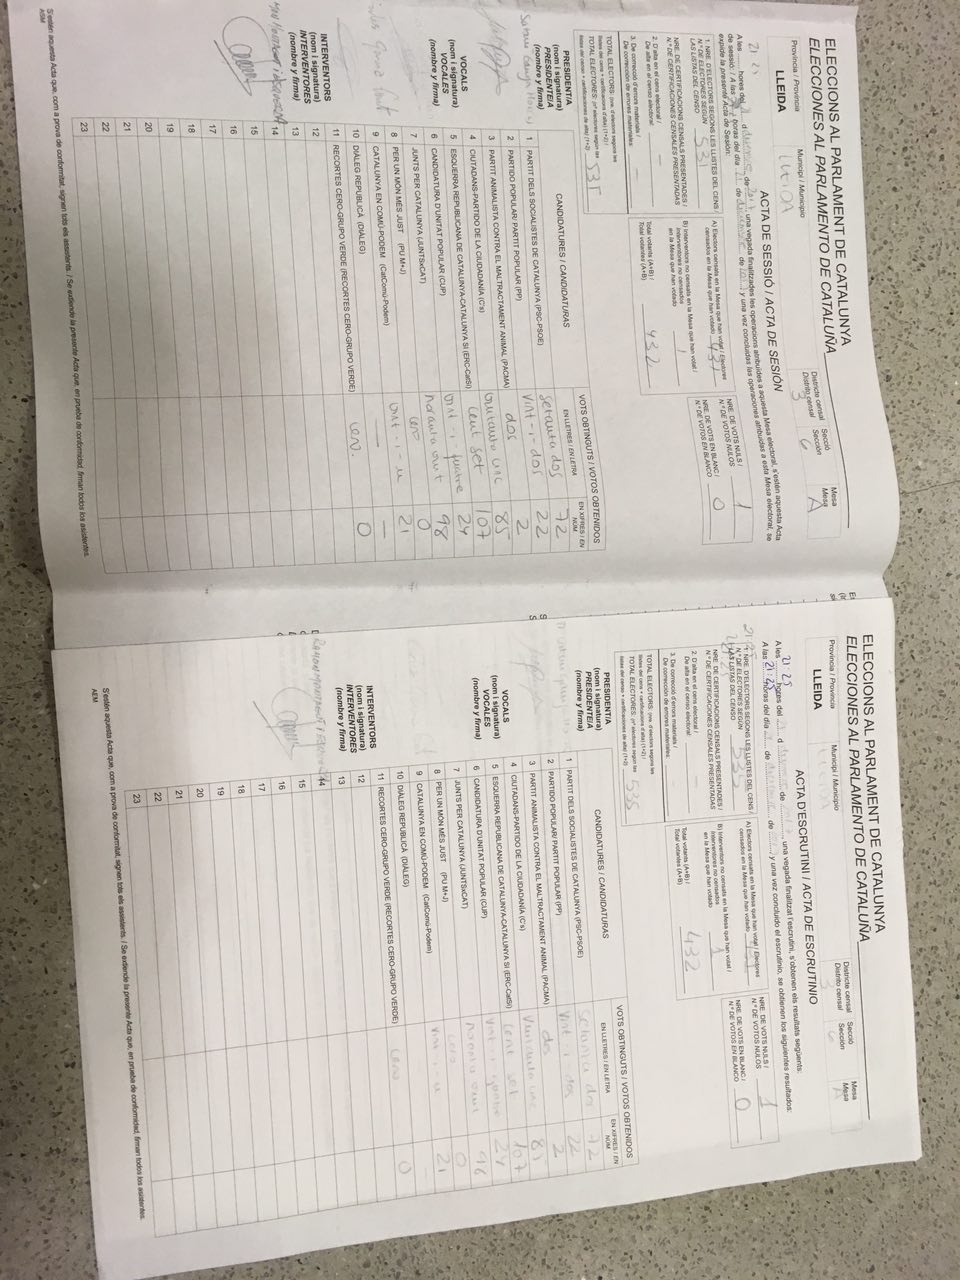 ELECCIONS AL PARLAMENT DE CATALUNYA
ELECCIONES AL PARLAMENTO DE CATALUÑA
Província / Provincia
LLEIDA
Municipi / Municipio
LLEIDA
Districte censal
Distrito censal
3
Secció
Sección
6
Mesa
Mesa
A
ACTA DE SESSIÓ / ACTA DE SESIÓN
una vegada finalitzades les operacions atribuïdes a aquesta Mesa electoral, s'estén aquesta Acta
de sessió / A las horas del día 21 de de y una vez concluidas las operaciones atribuidas a esta Mesa electoral, se
expide la presente Acta de Sesión.
1. NRE. D'ELECTORS SEGONS LES LLISTES DEL CENS /
N.º DE ELECTORES SEGÚN
LAS LISTAS DEL CENSO
NRE. DE CERTIFICACIONS CENSALS PRESENTADES /
N.º DE CERTIFICACIONES CENSALES PRESENTADAS
2. D'alta en el cens electoral /
De alta en el censo electoral:
3. De correcció d'errors materials /
De corrección de errores materiales:
A) Electors censats en la Mesa que han votat / Electores
censados en la Mesa que han votado 431
B) Interventors no censats en la Mesa que han votat /
Interventores no censados
en la Mesa que han votado 1
Total votants (A+B) /
Total votantes (A+B) 432
NRE. DE VOTS NULS /
N.º DE VOTOS NULOS 1
NRE. DE VOTS EN BLANC /
N.º DE VOTOS EN BLANCO 0
TOTAL ELECTORS: (nre. d'electors segons les
llistes del cens + certificacions d'alta) (1+2) /
TOTAL ELECTORES: (nº electores según las
listas del censo + certificaciones de alta) (1+2) 535
CANDIDATURES / CANDIDATURAS
VOTS OBTINGUTS / VOTOS OBTENIDOS
EN LLETRES / EN LETRA
EN XIFRES / EN NÚM.
1 PARTIT DELS SOCIALISTES DE CATALUNYA (PSC-PSOE) setanta dos 72
2 PARTIDO POPULAR/ PARTIT POPULAR (PP) vint-i-dos 22
3 PARTIT ANIMALISTA CONTRA EL MALTRACTAMENT ANIMAL (PACMA) dos 2
4 CIUTADANS-PARTIDO DE LA CIUDADANÍA (C's) 85
5 ESQUERRA REPUBLICANA DE CATALUNYA-CATALUNYA SÍ (ERC-CatSí) cent set 107
6 CANDIDATURA D'UNITAT POPULAR (CUP) vint-i-quatre 24
7 JUNTS PER CATALUNYA (JUNTSxCAT) noranta vuit 98
8 PER UN MÓN MÉS JUST (PU M+J) cero 0
9 CATALUNYA EN COMÚ-PODEM (CatComú-Podem) vint-i-u 21
10 DIÀLEG REPUBLICÀ (DIÀLEG) —
11 RECORTES CERO-GRUPO VERDE (RECORTES CERO-GRUPO VERDE) cero 0
12
13
14
15
16
17
18
19
20
21
22
23
PRESIDENT/A
(nom i signatura)
PRESIDENTE/A
(nombre y firma)
VOCALS
(nom i signatura)
VOCALES
(nombre y firma)
INTERVENTORS
(nom i signatura)
INTERVENTORES
(nombre y firma)
S'estén aquesta Acta que, com a prova de conformitat, signen tots els assistents. / Se extiende la presente Acta que, en prueba de conformidad, firman todos los asistentes.
ELECCIONS AL PARLAMENT DE CATALUNYA
ELECCIONES AL PARLAMENTO DE CATALUÑA
Província / Provincia
LLEIDA
Municipi / Municipio
Districte censal
Distrito censal
3
Secció
Sección
6
Mesa
Mesa
A
ACTA D'ESCRUTINI / ACTA DE ESCRUTINIO
A les 21:25 hores del d de , una vegada finalitzat l'escrutini, s'obtenen els resultats següents:
A las 21:25 horas del día de de y una vez concluido el escrutinio, se obtienen los siguientes resultados:
1. NRE. D'ELECTORS SEGONS LES LLISTES DEL CENS /
N.º DE ELECTORES SEGÚN
LAS LISTAS DEL CENSO
NRE. DE CERTIFICACIONS CENSALS PRESENTADES /
N.º DE CERTIFICACIONES CENSALES PRESENTADAS
2. D'alta en el cens electoral /
De alta en el censo electoral:
3. De correcció d'errors materials /
De corrección de errores materiales:
A) Electors censats en la Mesa que han votat / Electores
censados en la Mesa que han votado 431
B) Interventors no censats en la Mesa que han votat /
Interventores no censados
en la Mesa que han votado 1
Total votants (A+B) /
Total votantes (A+B) 432
NRE. DE VOTS NULS /
N.º DE VOTOS NULOS 1
NRE. DE VOTS EN BLANC /
N.º DE VOTOS EN BLANCO 0
TOTAL ELECTORS: (nre. d'electors segons les
llistes del cens + certificacions d'alta) (1+2) /
TOTAL ELECTORES: (nº electores según las
listas del censo + certificaciones de alta) (1+2) 535
CANDIDATURES / CANDIDATURAS
VOTS OBTINGUTS / VOTOS OBTENIDOS
EN LLETRES / EN LETRA
EN XIFRES / EN NÚM.
1 PARTIT DELS SOCIALISTES DE CATALUNYA (PSC-PSOE) setanta dos 72
2 PARTIDO POPULAR/ PARTIT POPULAR (PP) vint i dos 22
3 PARTIT ANIMALISTA CONTRA EL MALTRACTAMENT ANIMAL (PACMA) dos 2
4 CIUTADANS-PARTIDO DE LA CIUDADANÍA (C's) 85
5 ESQUERRA REPUBLICANA DE CATALUNYA-CATALUNYA SÍ (ERC-CatSí) cent set 107
6 CANDIDATURA D'UNITAT POPULAR (CUP) 24
7 JUNTS PER CATALUNYA (JUNTSxCAT) noranta vuit 98
8 PER UN MÓN MÉS JUST (PU M+J) cero 0
9 CATALUNYA EN COMÚ-PODEM (CatComú-Podem) 21
10 DIÀLEG REPUBLICÀ (DIÀLEG)
11 RECORTES CERO-GRUPO VERDE (RECORTES CERO-GRUPO VERDE) cero 0
12
13
14
15
16
17
18
19
20
21
22
23
PRESIDENT/A
(nom i signatura)
PRESIDENTE/A
(nombre y firma)
VOCALS
(nom i signatura)
VOCALES
(nombre y firma)
INTERVENTORS
(nom i signatura)
INTERVENTORES
(nombre y firma)
S'estén aquesta Acta que, com a prova de conformitat, signen tots els assistents. / Se extiende la presente Acta que, en prueba de conformidad, firman todos los asistentes.
AEM